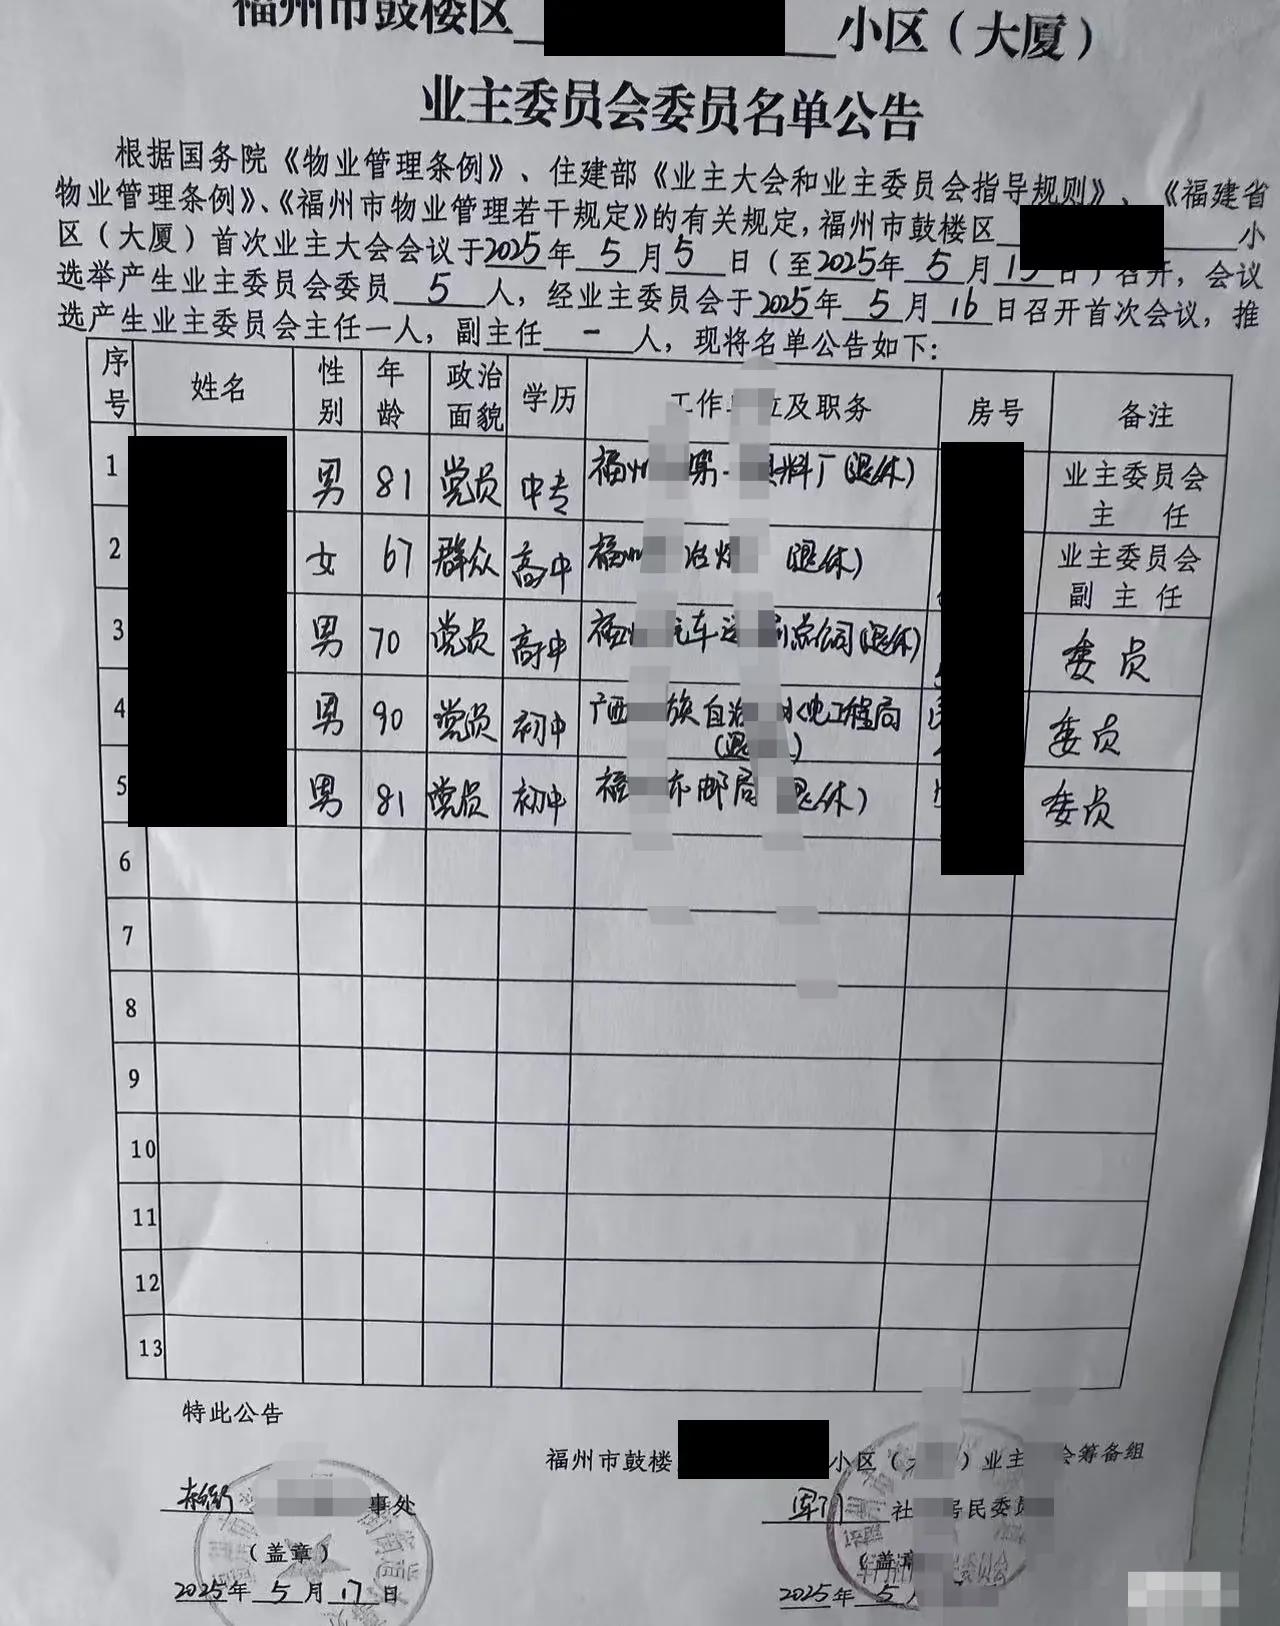 福州市鼓楼区 小区（大厦）
业主委员会委员名单公告
根据国务院《物业管理条例》、住建部《业主大会和业主委员会指导规则》、《福建省
物业管理条例》、《福州市物业管理若干规定》的有关规定，福州市鼓楼区 小
区（大厦）首次业主大会会议于2025年 5 月 5 日（至2025年 5 月 15 日）召开，会议
选举产生业主委员会委员 5 人，经业主委员会于2025年 5 月 16 日召开首次会议，推
选产生业主委员会主任一人，副主任 一 人，现将名单公告如下：
序号 姓名 性别 年龄 政治面貌 学历 工作 位及职务 房号 备注
1 男 81 党员 中专 福州 料厂（退休） 业主委员会主 任
2 女 67 群众 高中 福州 （退休） 业主委员会副 主 任
3 男 70 党员 高中 福 汽车 总公司（退休） 委员
4 男 90 党员 初中 广西 族自治 水电工程局（退 ） 委员
5 男 81 党员 初中 福 市邮局 退休） 委员
6
7
8
9
10
11
12
13
特此公告
福州市鼓楼 小区（大 ）业主 会筹备组
事处 军门 社 居民委员
（盖章） （盖章
2025年 5 月 17 日 2025年 5 月